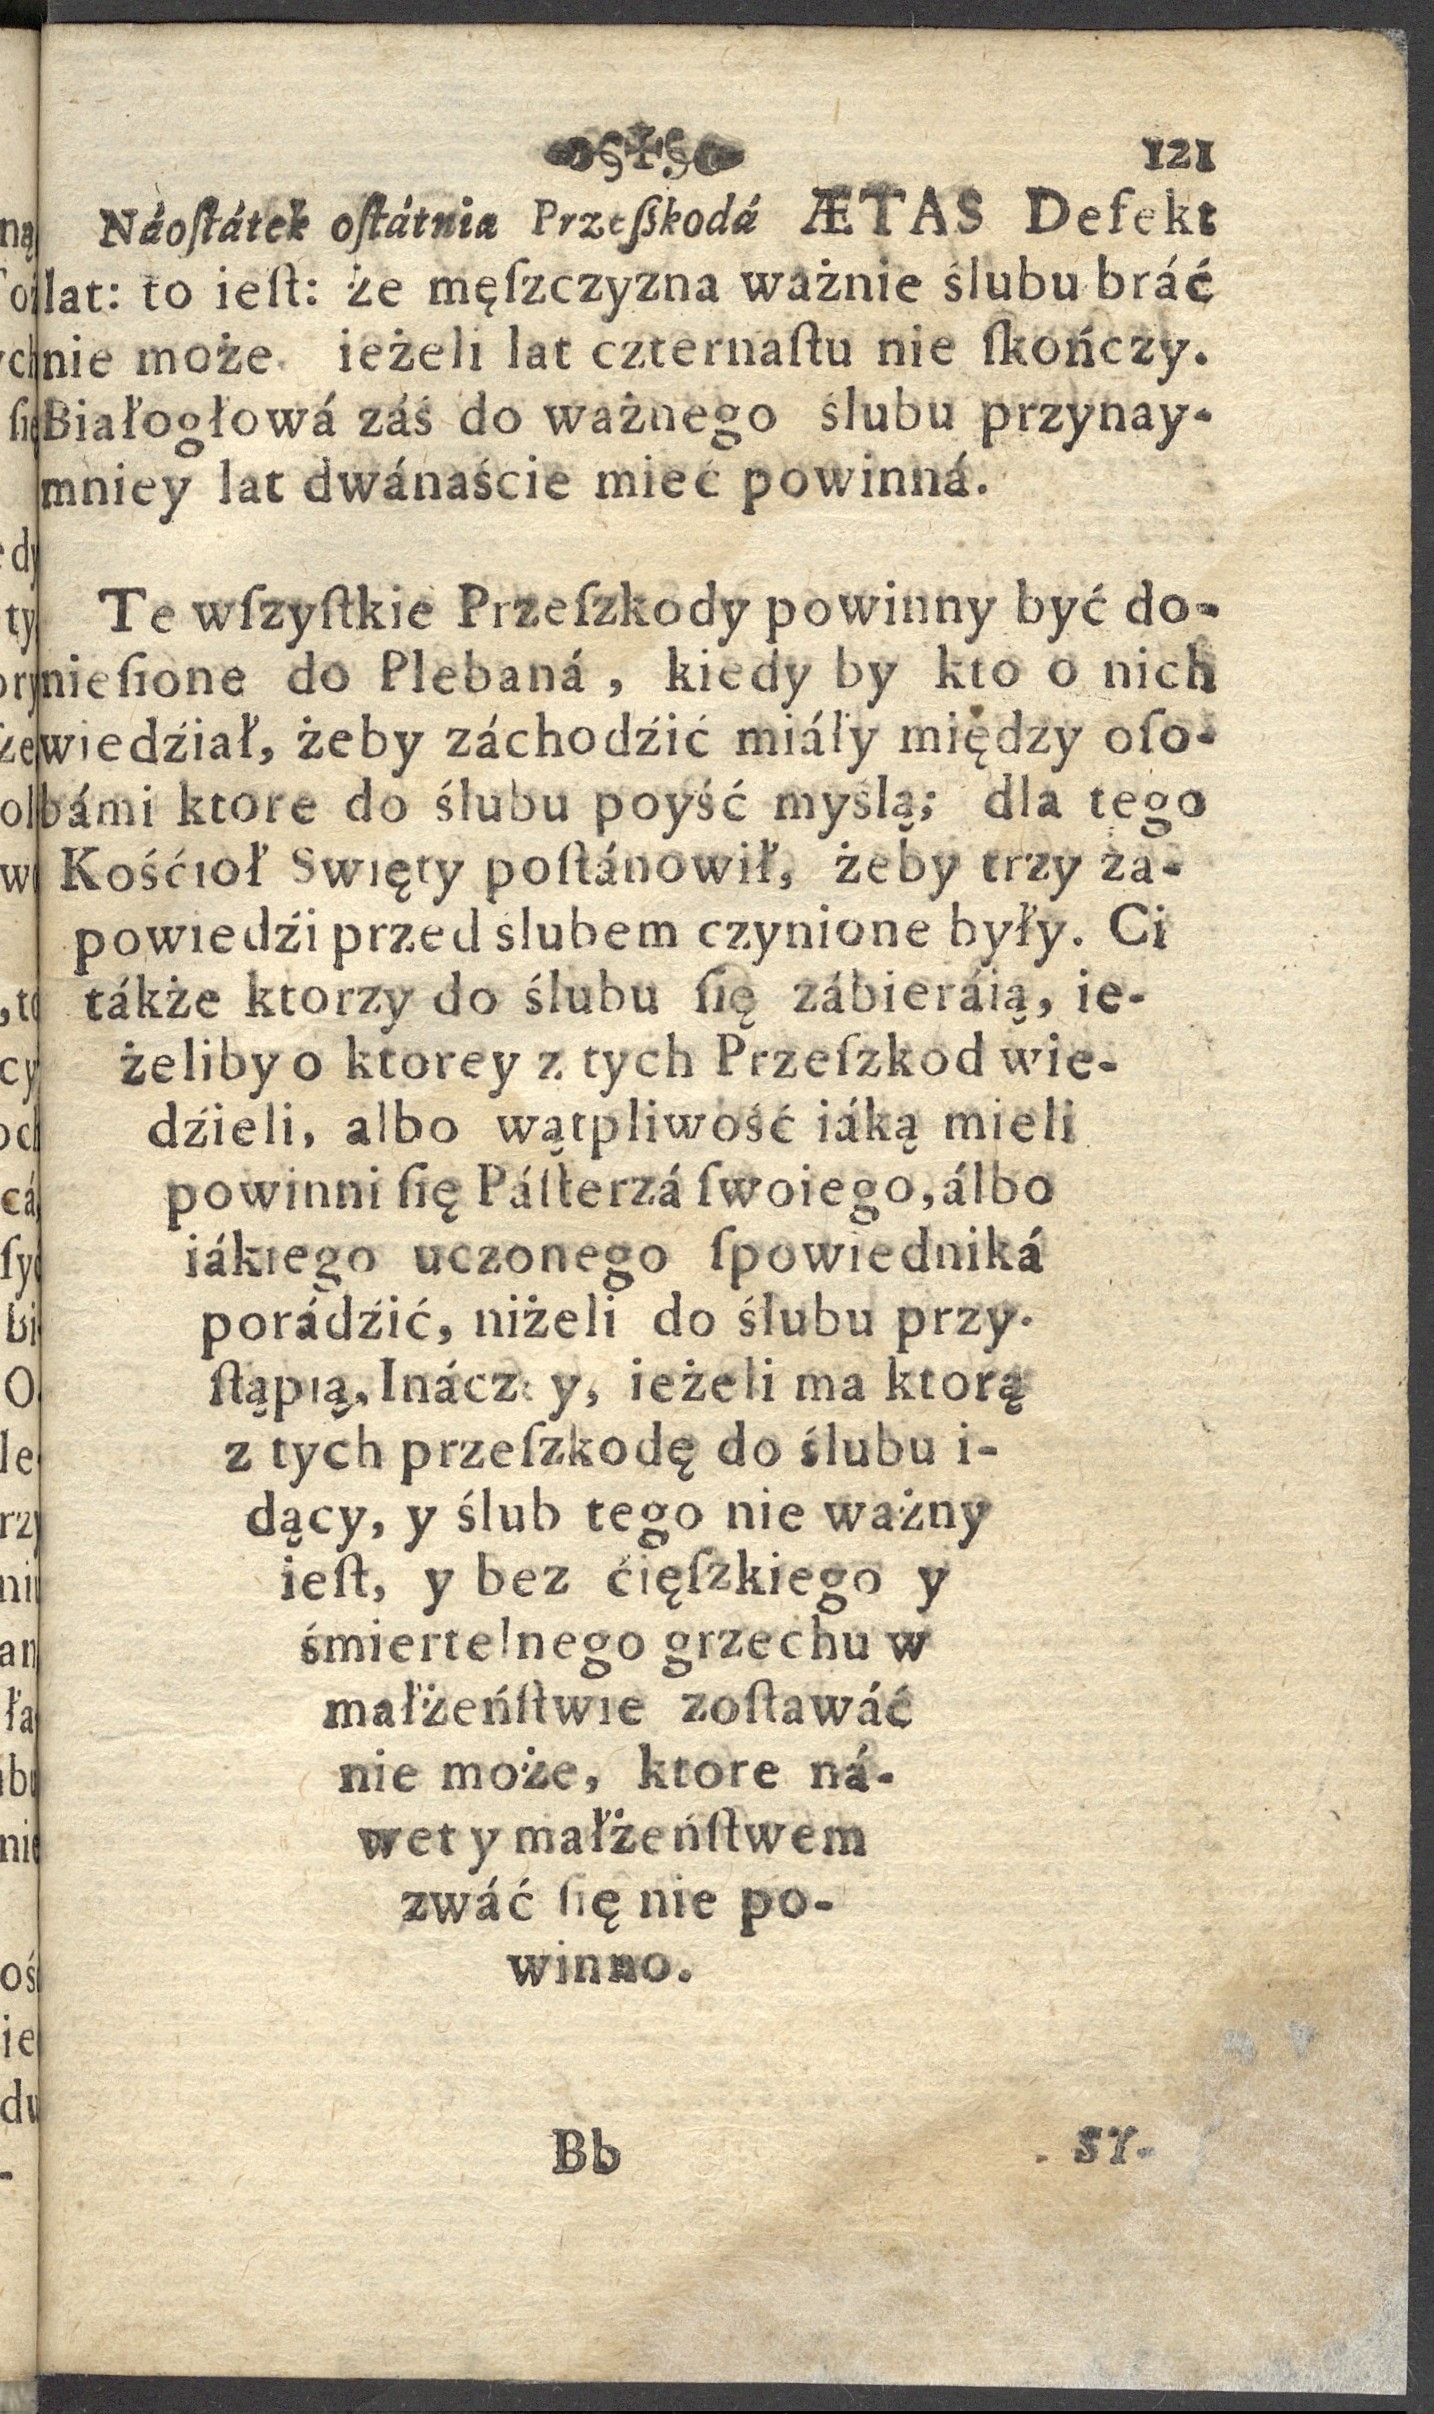 121
Náoſtátek oſtátnia Przeßkodá ÆTAS Defekt
lat: to ieſt: że męſzczyzna ważnie ślubu bráć
nie może. ieżeli lat czternaſtu nie ſkończy.
Białogłowá záś do ważnego ślubu przynay-
mniey lat dwánaście mieć powinná.
Te wſzyſtkie Przeſzkody powinny być do-
nieſione do Plebaná, kiedy by kto o nich
wiedźiał, żeby záchodźić miáły między oſo-
bámi ktore do ślubu poyść myślą; dla tego
Kośćioł Swięty poſtánowił, żeby trzy za-
powiedźi przed slubem czynione były. Ci
tákże ktorzy do ślubu ſię zábieráią, ie-
żeliby o ktorey z tych Przeſzkod wie-
dźieli, albo wątpliwość iáką mieli
powinni ſię Páſterzá ſwoiego, álbo
iákiego uczonego ſpowiedniká
porádźić, niżeli do ślubu przy-
ſtąpią, Ináczey, ieżeli ma ktorą
z tych przeſzkodę do ślubu i-
dący, y ślub tego nie ważny
ieſt, y bez ćięſzkiego y
śmiertelnego grzechu w
małżeńſtwie zoſtawáć
nie może, ktore ná-
wet y małżeńſtwem
zwáć ſię nie po-
winno.
Bb
SY-